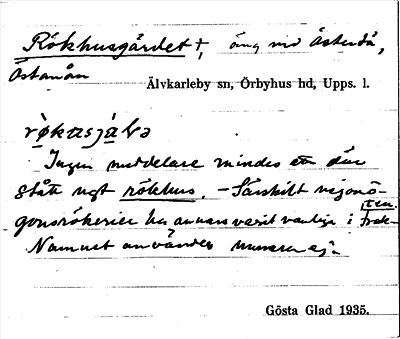 Rökhusgärdet †, äng vid Österå,
Östanån
Älvkarleby sn, Örbyhus hd, Upps. l.
rø̀kɑsjà̤lə
Ingen meddelare mindes att där
stått ngt rökhus. – Särskilt nejonö-
gonsrökerier ha annars varit vanliga i trak-
ten.
Namnet användes numera ej.
Gösta Glad 1935.